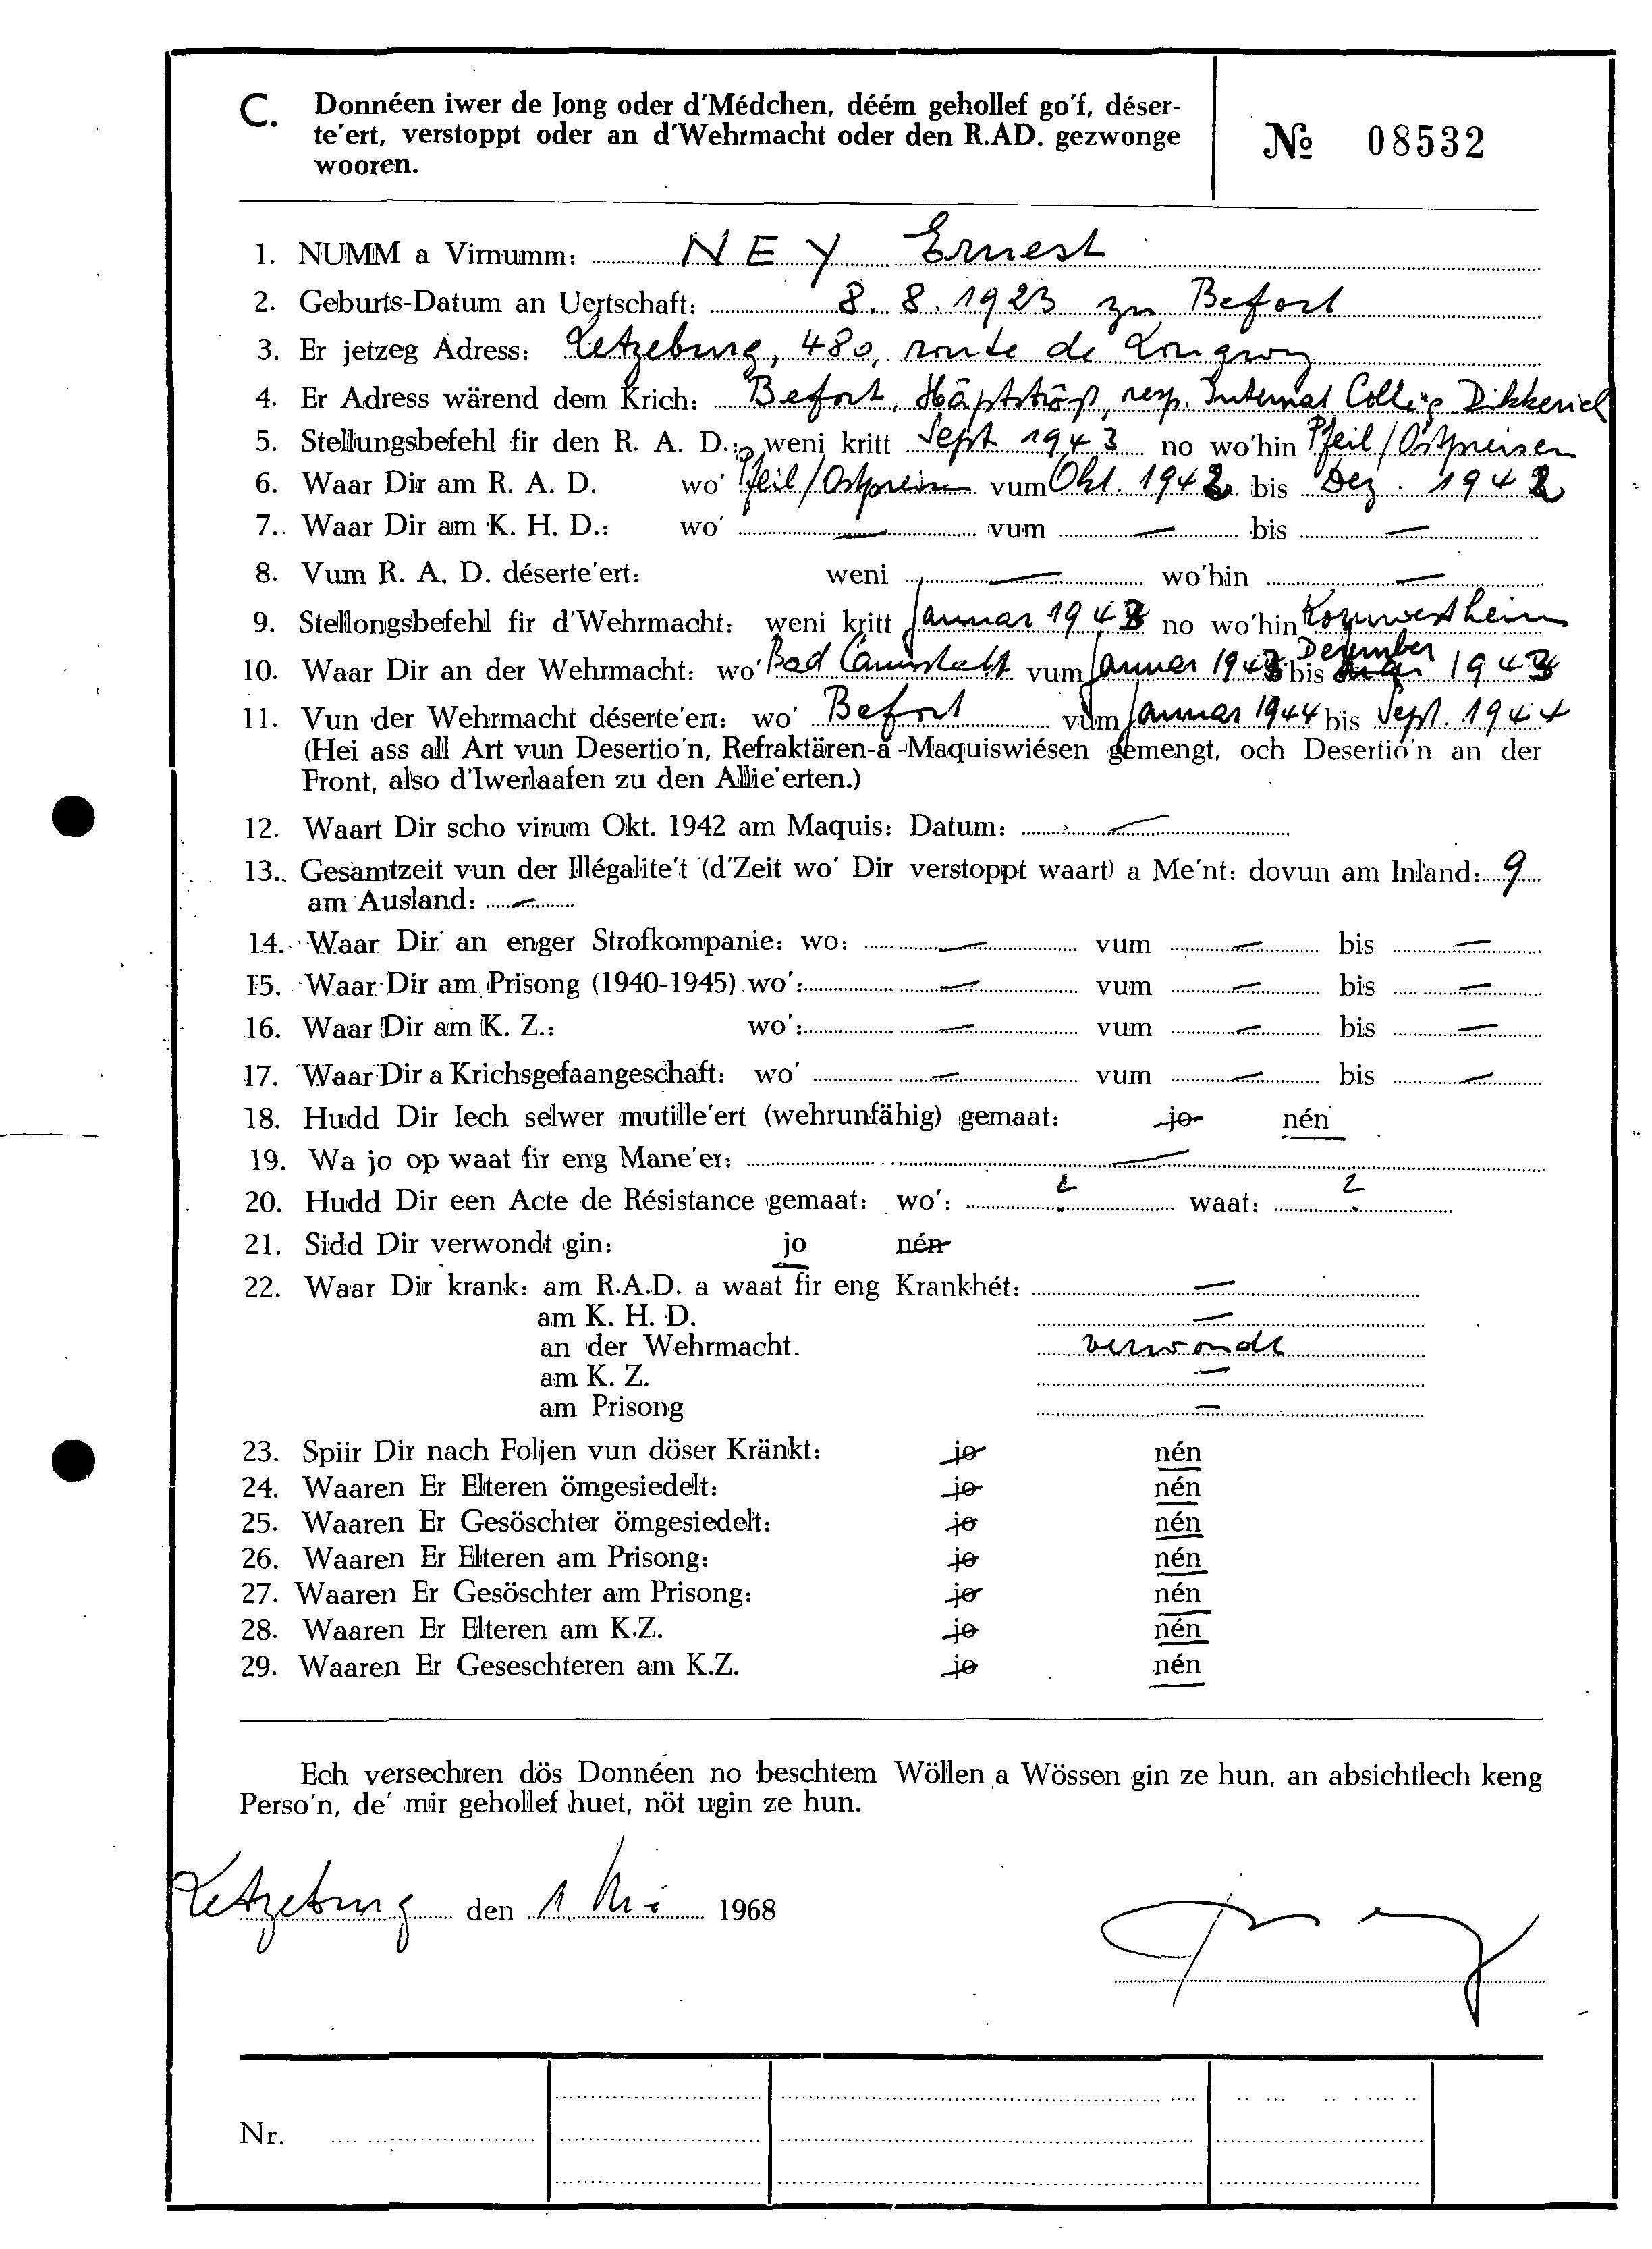 C. Donnéen iwer de Jong oder d'Médchen, déém gehollef go'f, déser-
te'ert, verstoppt oder an d'Wehrmacht oder den R.AD. gezwonge
wooren.
№ 08532
1. NUMM a Virnumm: NEY Ernest
2. Geburts-Datum an Uertschaft: 8. 8. 1923 zu Befort
3. Er jetzeg Adress: Letzeburg, 480, route de Longwy
4. Er Adress wärend dem Krich: Befort, Häptströß, resp. Internat Collèg Dikkerich
5. Stellungsbefehl fir den R. A. D.: weni kritt Sept 1943 no wo'hin Pfeil/Ostpreisen
6. Waar Dir am R. A. D. wo' Pfeil/Ostpreisen vum Okt. 1942 bis Dez. 1942
7. Waar Dir am K. H. D.: wo' — vum — bis —
8. Vum R. A. D. déserte'ert: weni — wo'hin —
9. Stellongsbefehl fir d'Wehrmacht: weni kritt Januar 1943 no wo'hin Kornwestheim
10. Waar Dir an der Wehrmacht: wo' Bad Cannstatt vum Januar 1943 bis Dezember 1943
11. Vun der Wehrmacht déserte'ert: wo' Befort vum Januar 1944 bis Sept. 1944
(Hei ass all Art vun Desertio'n, Refraktären-a-Maquiswiésen gemengt, och Desertio'n an der
Front, also d'Iwerlaafen zu den Allie'erten.)
12. Waart Dir scho virum Okt. 1942 am Maquis: Datum: —
13. Gesamtzeit vun der Illégalite't (d'Zeit wo' Dir verstoppt waart) a Me'nt: dovun am Inland: 9
am Ausland: —
14. Waar Dir an enger Strofkompanie: wo: — vum — bis —
15. Waar Dir am Prisong (1940-1945) wo': — vum — bis —
16. Waar Dir am K. Z.: wo': — vum — bis —
17. Waar Dir a Krichsgefaangeschaft: wo' — vum — bis —
18. Hudd Dir Iech selwer mutille'ert (wehrunfähig) gemaat: jo nén
19. Wa jo op waat fir eng Mane'er: —
20. Hudd Dir een Acte de Résistance gemaat: wo': ? waat: ?
21. Sidd Dir verwondt gin: jo nén
22. Waar Dir krank: am R.A.D. a waat fir eng Krankhét: —
am K. H. D. —
an der Wehrmacht. verwondt
am K. Z. —
am Prisong —
23. Spiir Dir nach Foljen vun döser Kränkt: jo nén
24. Waaren Er Elteren ömgesiedelt: jo nén
25. Waaren Er Gesöschter ömgesiedelt: jo nén
26. Waaren Er Elteren am Prisong: jo nén
27. Waaren Er Gesöschter am Prisong: jo nén
28. Waaren Er Elteren am K.Z. jo nén
29. Waaren Er Geseschteren am K.Z. jo nén
Ech versechren dös Donnéen no beschtem Wöllen a Wössen gin ze hun, an absichtlech keng
Perso'n, de' mir gehollef huet, nöt ugin ze hun.
Letzeburg den 1. 1968
Nr.